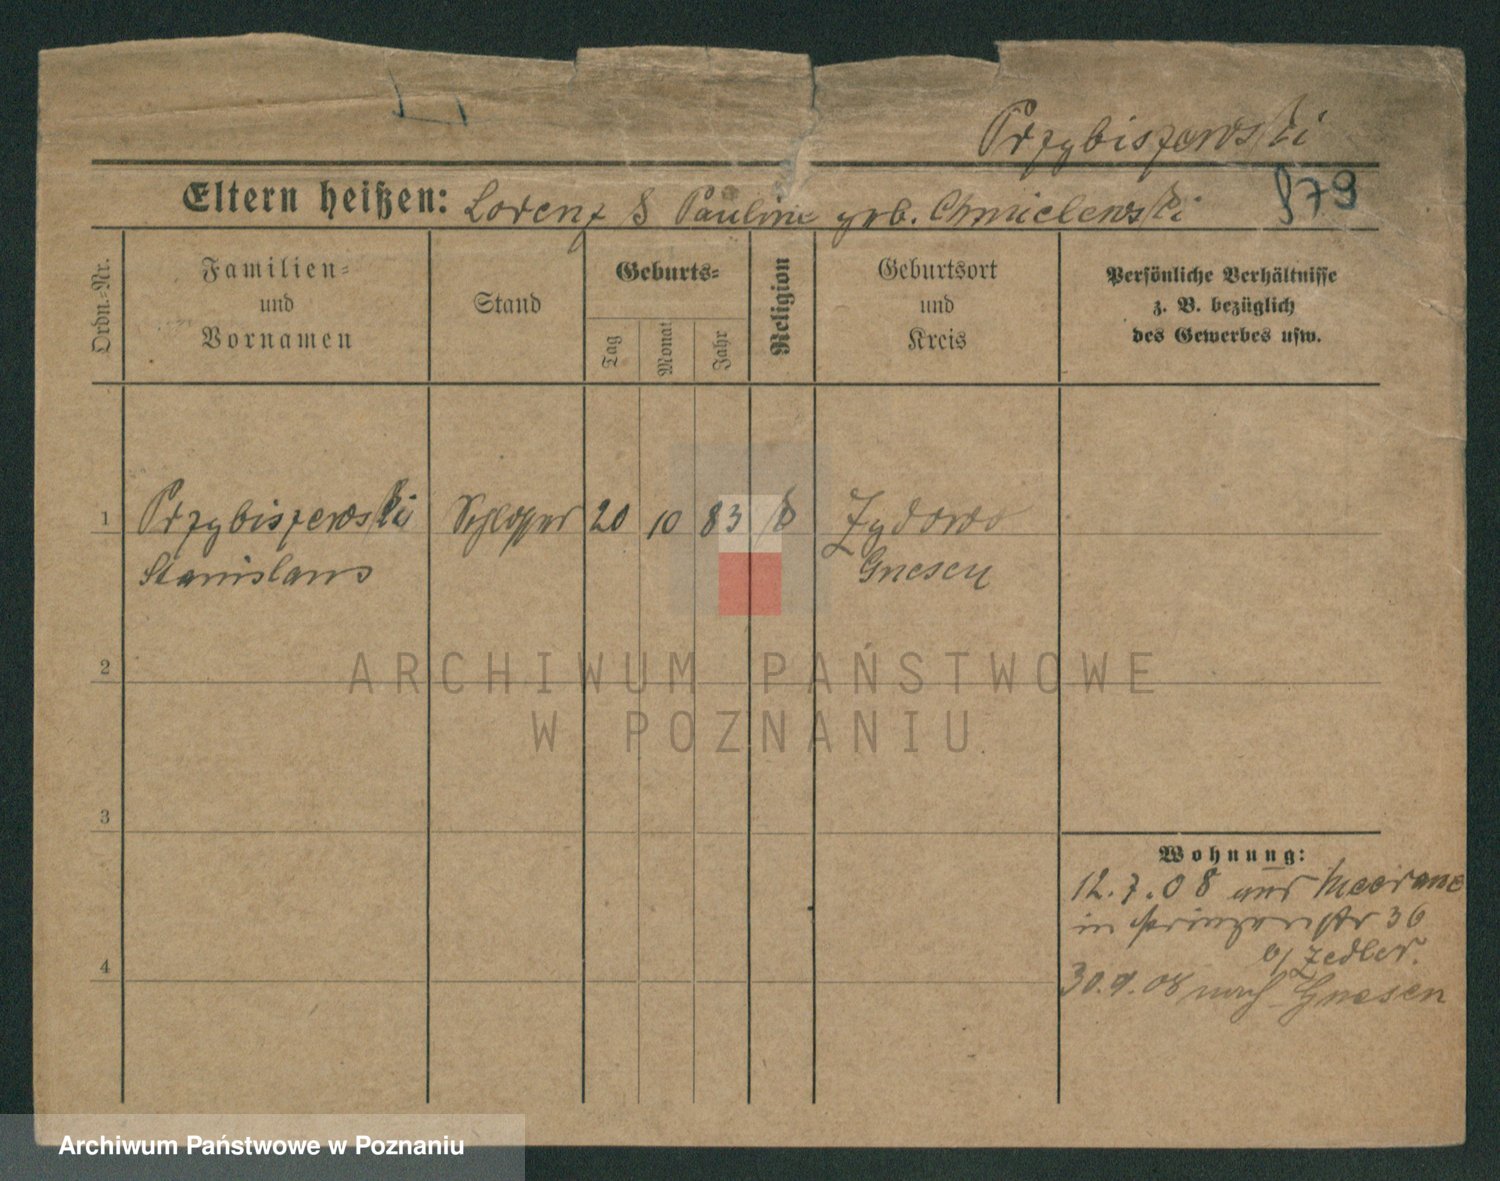 Przybiszewski
979
Eltern heißen: Lorenz & Pauline geb. Chmielewski
Ordn.-Nr.
Familien-
und
Vornamen
Stand
Geburts-
Tag
Monat
Jahr
Religion
Geburtsort
und
Kreis
Persönliche Verhältnisse
z. B. bezüglich
des Gewerbes usw.
1
Przybiszewski
Stanislaus
Schlosser
20
10
83
Zydowo
Gnesen
2
ARCHIWUM PAŃSTWOWE
W POZNANIU
3
4
Wohnung:
12.7.08 aus Meerane
in Prinzenstr 36
b/ Zedler.
30.9.08 nach Gnesen
Archiwum Państwowe w Poznaniu